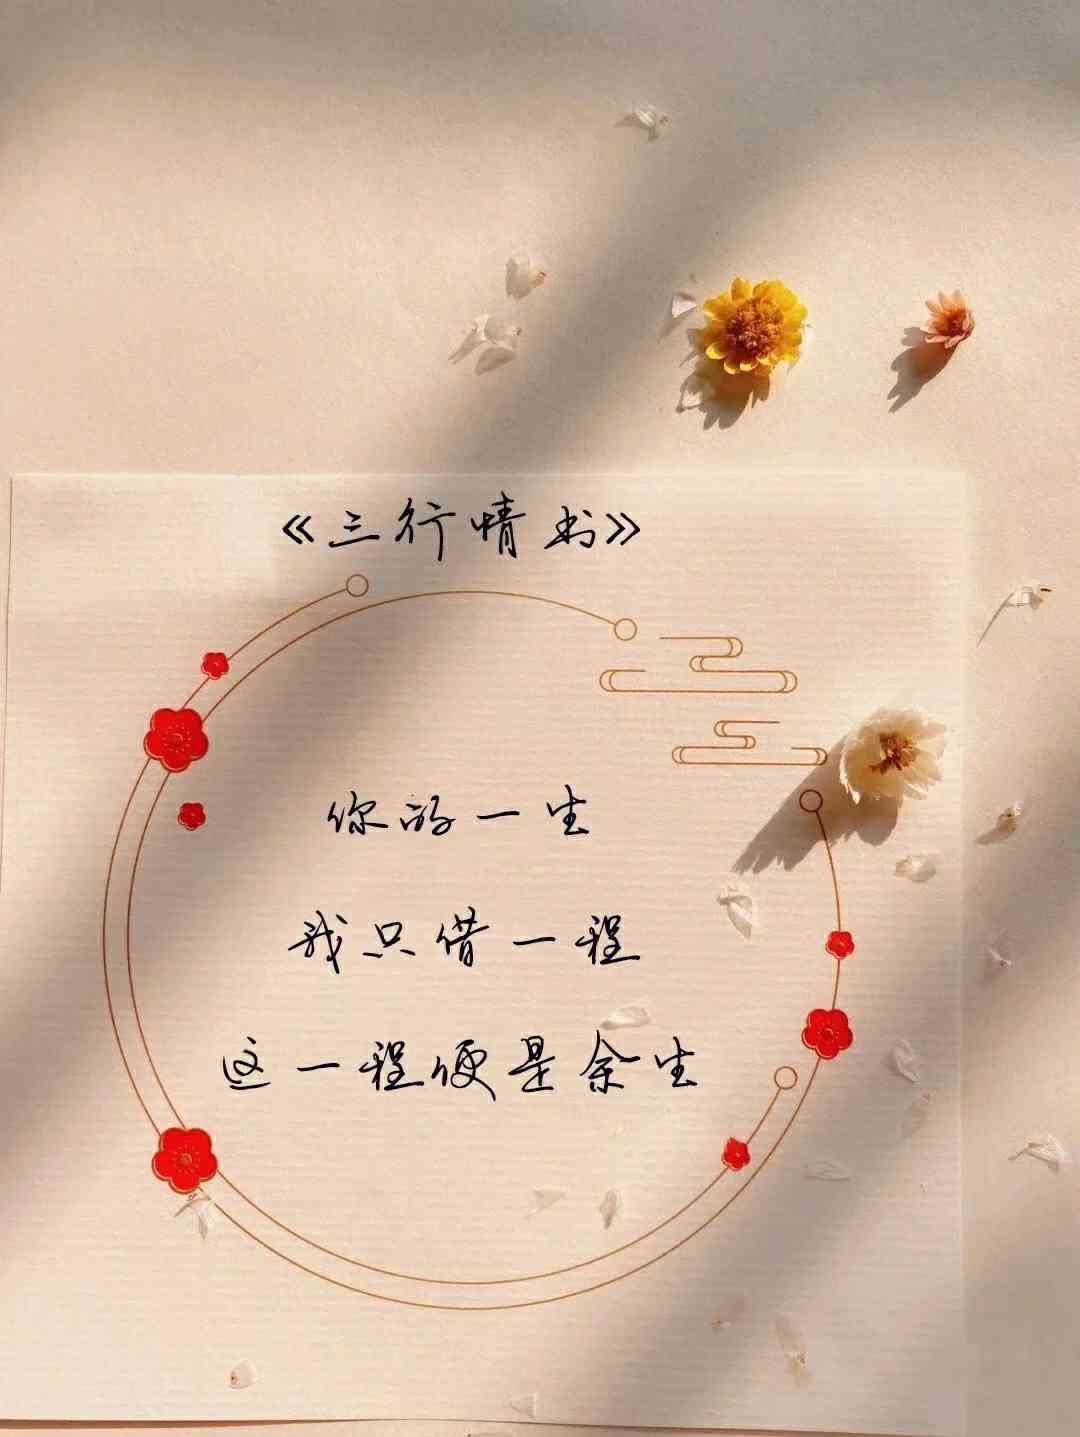 《三行情书》
你的一生
我只借一程
这一程便是余生